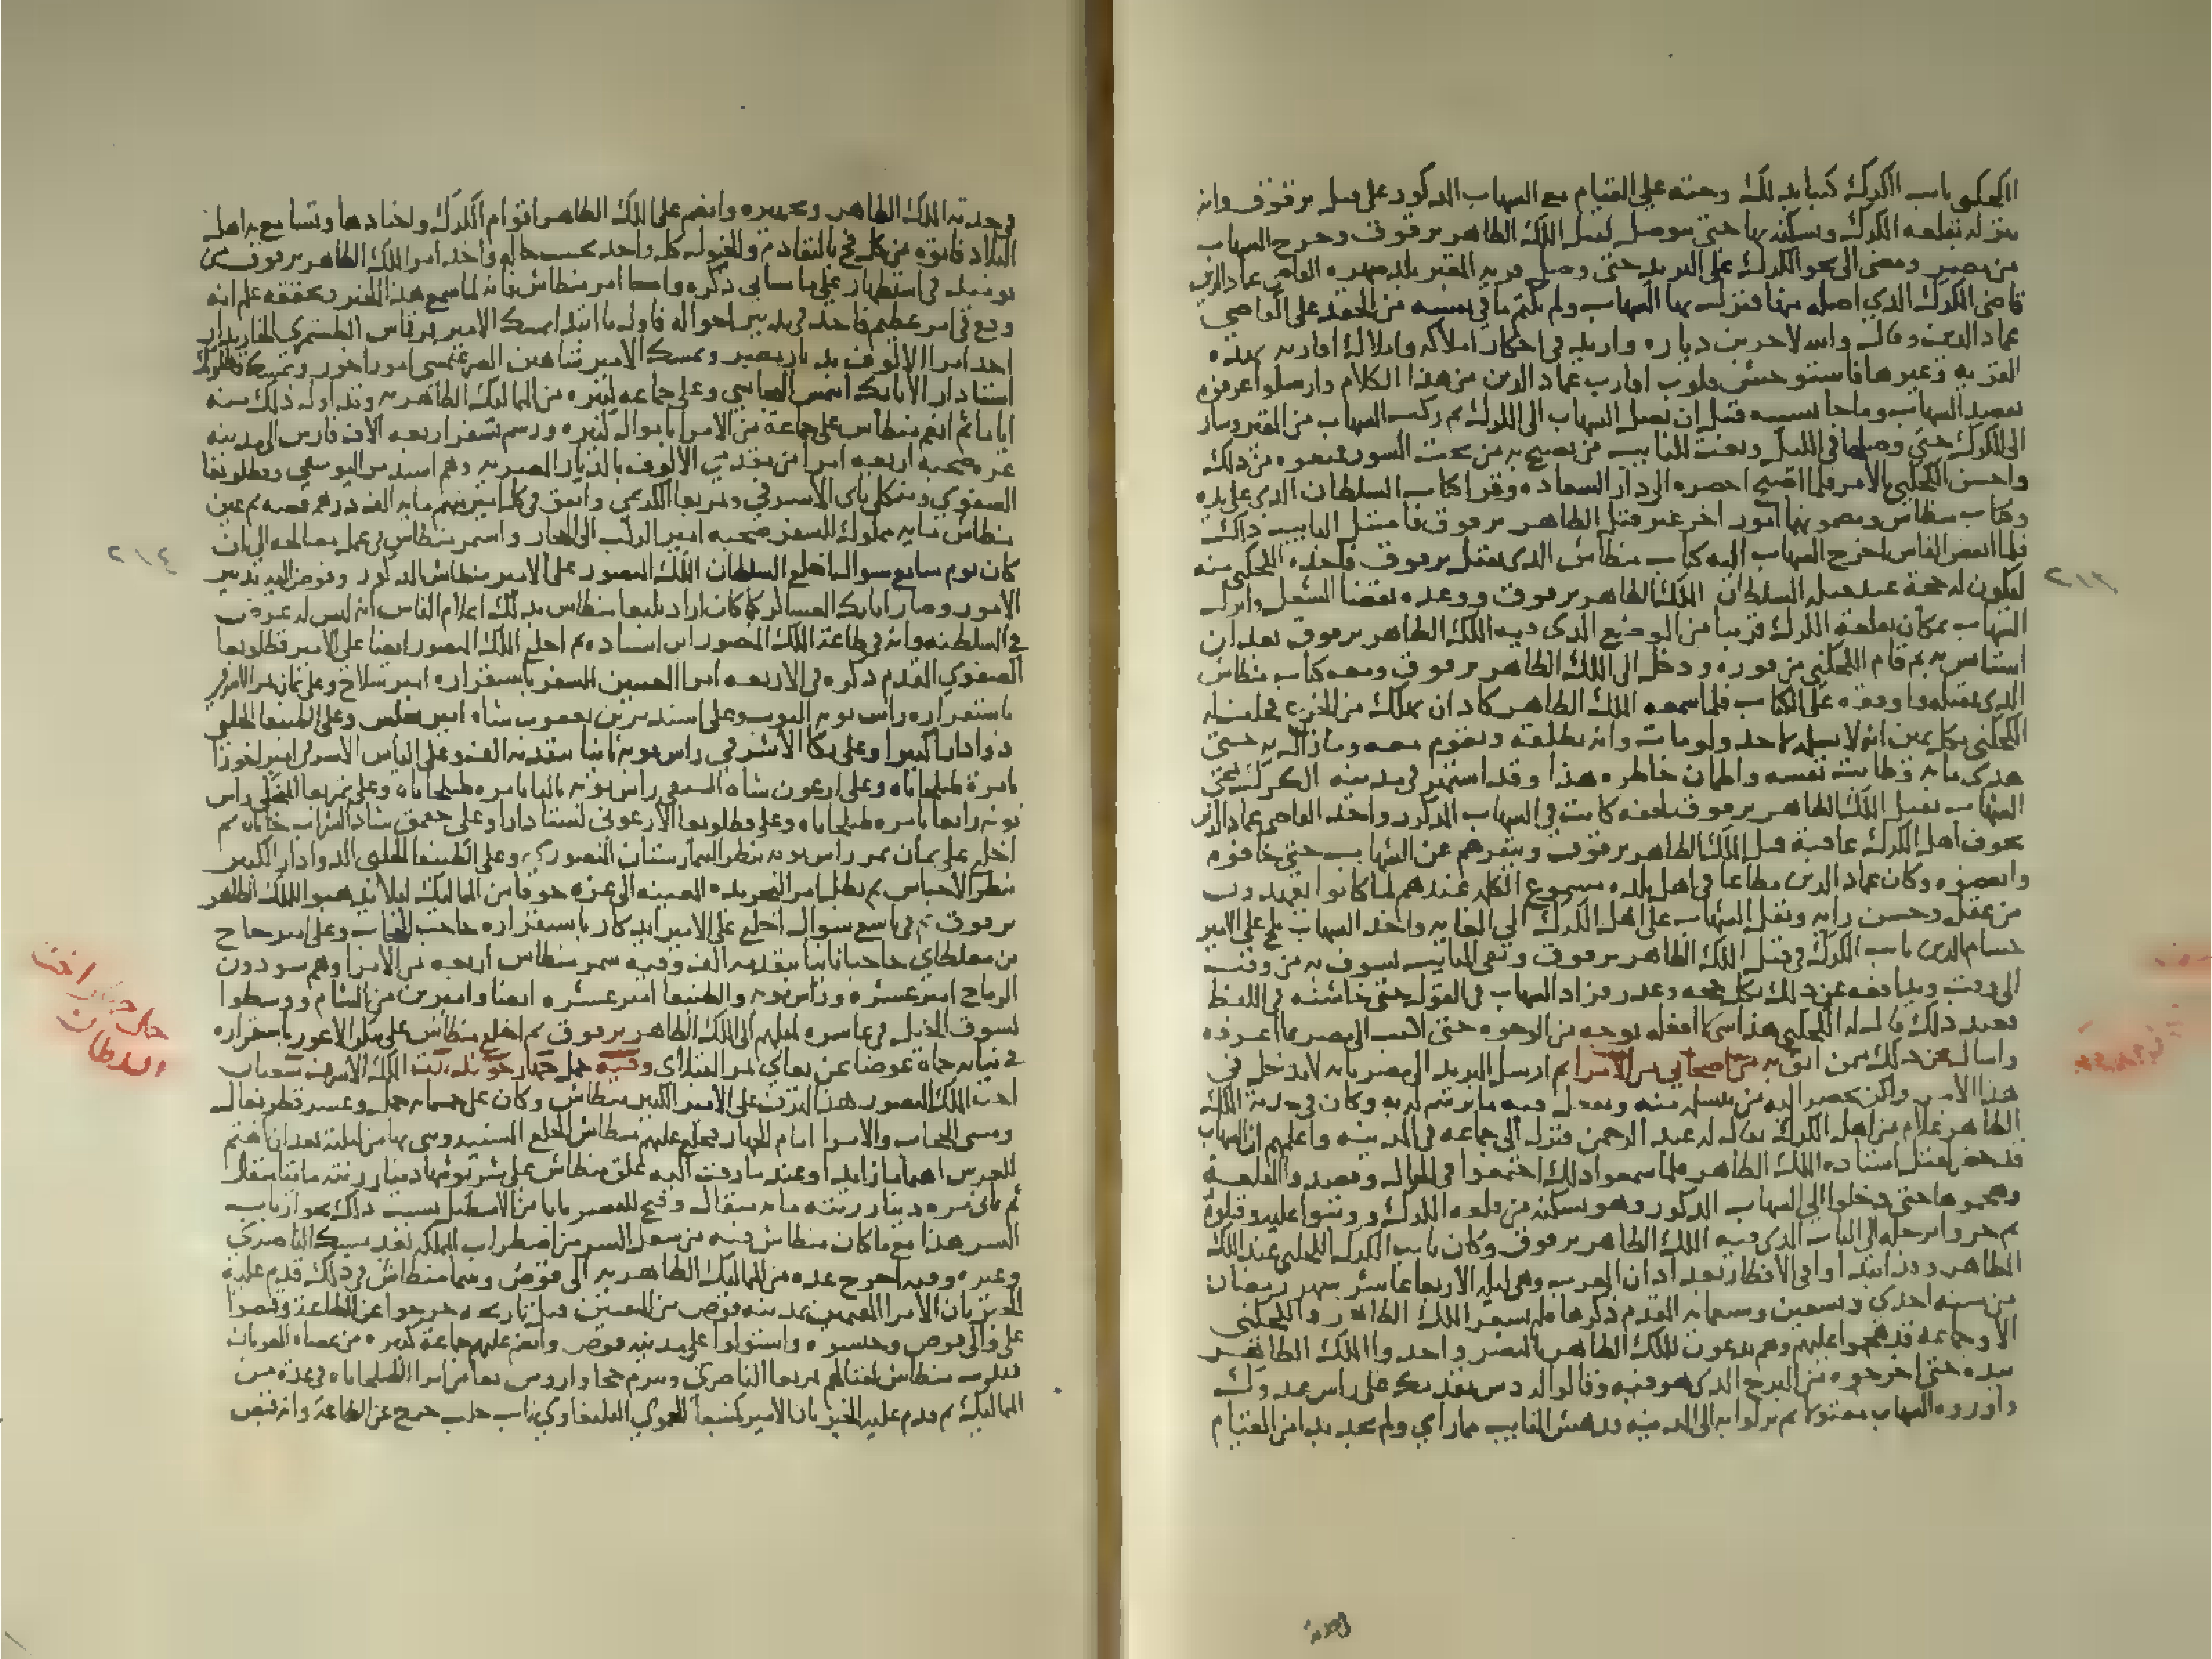 الكجكنى نايب الكرك كتابا بذلك وحثه على القيام مع الشهاب المذكور على قتل برقوق وانه
ينزله بقلعة الكرك ويسكنه بها حتى يتوصل لقتل الملك الظاهر برقوق وخرج الشهاب
من مصر ومضى الى نحو الكرك على البريد حتى وصل قرية المقير بلد صهره القاضى عماد الدين
قاضى الكرك الذي اصله منها فنزل بها الشهاب ولم يكتم ما في نفسه من الحقد على القاضي
عماد الدين وقال والله لاخربن دياره وازيد في احكار املاكه واملاك اقاربه بهذه
القرية وغيرها فاستوحش قلوب اقارب عماد الدين من هذا الكلام وارسلوا عرفوه
بقصد الشهاب وما جا بسببه قبل ان يصل الشهاب الى الكرك ثم ركب الشهاب من المقير وسار
الى الكرك حتى وصلها في الليل وبعث للنايب من يصيح به من تحت السور فمنعوه من ذلك
واحس الكجكني بالامر فلما اصبح احضره الى دار السعادة وقرا كتاب السلطان الذي على يده
وكتاب منطاش ومضمونهما امور اخر غير قتل الظاهر برقوق فامتثل النايب ذلك
فلما انفض الناس اخرج الشهاب اليه كتاب منطاش الذي بقتل برقوق فاخذه الكجكني منه
ليكون له حجة عند قتله السلطان الملك الظاهر برقوق ووعده بقضا الشغل وانزل
الشهاب بمكان بقلعة الكرك قريبا من الموضع الذي فيه الملك الظاهر برقوق بعد ان
استانس به ثم قام الكجكني من فوره ودخل الى الملك الظاهر برقوق ومعه كتاب منطاش
الذي بقتله واوقفه على الكتاب فلما سمعه الملك الظاهر كاد ان يهلك من الجزع فحلف له
الكجكني بكل يمين انه لا يسلمه لاحد ولو مات وانه يطلقه ويقوم معه وما زال به حتى
هدى ما به وطابت نفسه واطمان خاطره هذا وقد اشتهر في مدينة الكرك مجى
الشهاب بقتل الملك الظاهر برقوق لخفة كانت في الشهاب المذكور واخذ القاضي عماد الدين
يخوف اهل الكرك عاقبة قتل الملك الظاهر برقوق وينفرهم عن الشهاب حتى خافوه
وابغضوه وكان عماد الدين مطاعا في اهل بلده مسموع الكلمه عندهم لما كانوا يعهدون
من عقله وحسن رايه وثقل الشهاب على اهل الكرك الى الغايه واخذ الشهاب يلح على الامير
حسام الدين نايب الكرك في قتل الملك الظاهر برقوق وبقى النايب يسوف به من وقت
الى وقت ويدافعه عن ذلك بكل حجه وعذر فزاد الشهاب في القول حتى خاشنه في اللفظ
فعند ذلك قال له الكجكني هذا شى لا افعله بوجه من الوجوه حتى اكتب الى مصر بما اعرفه
واسال عن ذلك ممن اثق به من اصحابي من الامرا ثم ارسل البريد الى مصر بانه لا يدخل في
هذا الامر ولكن يحضر اليه من يتسلمه منه ويفعل فيه ما يرسم له به وكان في خدمة الملك
الظاهر غلام من اهل الكرك يقال له عبد الرحمن فنزل الى جماعه في المدينه واعلمهم ان الشهاب
قد حضر لقتل استاده الملك الظاهر فلما سمعوا ذلك اجتمعوا في الحال وقصدوا القلعة
وهجموها حتى دخلوا الى الشهاب المذكور وهو بسكنه من قلعة الكرك ووثبوا عليه وقتلوه
ثم جروا برجله الى الباب الذي فيه الملك الظاهر برقوق وكان نايب الكرك الكجكني عند الملك
الظاهر وقد ابتداوا في الافطار بعد اذان المغرب وهي ليلة الاربعا عاشر شهر رمضان
من سنة احدى وتسعين وسبعمايه المقدم ذكرها فلم يشعر الملك الظاهر والكجكني
الا وجماعه قد هجموا عليهم وهم يدعون للملك الظاهر بالنصر واخدوا الملك الظاهر
بيده حتى اخرجوه من البرج الذي هو فيه وقالوا له دس بقدمك على راس عدوك
واوروه الشهاب مقتولا ثم نزلوا به الى المدينه فدهش النايب مما راى ولم يجد بدا من القيام
٢١٣
في خدمة الملك الظاهر وتجهيزه وانضم على الملك الظاهر اقوام الكرك واجنادها وتسامع به اهل
البلاد فاتوه من كل فج بالتقادم والخيول كل واحد بحسب حاله واخذ امر الملك الظاهر برقوق من
يوميذ في استظهار على ما ساتي ذكره واما امر منطاش فانه لما سمع هذا الخبر وتحققه علم انه
وقع في امر عظيم فاخذ في تدبير احواله فاول ما ابتدا بمسك الامير قرقماس الطشتمري الخازندار
احد امرا الالوف بديار مصر ومسك الامير شاهين الصرغتمشى امير اخور وتمسك قطلوبك
استادار الاتابك ايتمش البجاسى وعلى جماعه كثيره من المماليك الظاهريه وتداول ذلك منه
اياما ثم انعم منطاش على جماعة من الامرا باموال كثيره ورسم بسفر اربعة الاف فارس الى مدينة
غزه صحبة اربعه امرا من مقدمي الالوف بالديار المصريه وهم اسندمر اليوسفي وقطلوبغا
الصفوي ومنكلي باى الاشرفي وتمربغا الكريمي وانفق في كل امير منهم مايه الف درهم فضه ثم عين
منطاش مايه مملوك للسفر صحبه امير الركب الى الحجاز واستمر منطاش في عمل مصالحه الى ان
كان يوم سابع شوال اخلع السلطان الملك المنصور على الامير منطاش المذكور وفوض اليه تدبير
الامور وصار اتابك العساكر كما كان اراد يلبغا منطاش بذلك اعلام الناس انه ليس له غرض
في السلطنه وانه في طاعة الملك المنصور ابن استاده ثم اخلع الملك المنصور ايضا على الامير قطلوبغا
الصفوي المقدم ذكره في الاربعه امرا المعينين للسفر باستقراره امير سلاح وعلى تمان تمر الاشرفي
باستقراره راس نوبه النوب وعلى اسندمر بن يعقوب شاه امير مجلس وعلى الطنبغا الحلبي
دوادارا كبيرا وعلى تكا الاشرفي راس نوبة ثانيا بتقدمه الف وعلى الياس الاشرفي امير اخور
بامرة طبلخاناه وعلى ارغون شاه السيفي راس نوبه ثالثا بامره طبلخاناه وعلى تمربغا المنجكي راس
نوبه رابعا بامره طبلخاناه وعلى قطلوبغا الارغوني استادارا وعلى جقمق شاد الشراب خاناه ثم
اخلع على تمان تمر راس نوبه بنظر البيمارستان المنصوري وعلى الطنبغا الحلبى الدوادار الكبير
بنظر الاحباس ثم بطل امر التجريده المعينه الى غزه خوفا من المماليك ليلا يذهبوا للملك الظاهر
برقوق ثم في تاسع شوال اخلع على الامير ايدكار باستقراره حاجب الحجاب وعلى امير حاج
بن مغلطاى حاجبا ثانيا بتقدمه الف وفيه سمر منطاش اربعه من الامرا وهم سودون
الرماح امير عشره وراس نوبه والطنبغا امير عشره ايضا واميرين من الشام ووسطوا
بسوق الخيل في عاشره لميلهم الى الملك الظاهر برقوق ثم اخلع منطاش على تنكز الاعور باستقراره
في نيابه حماة عوضا عن طغاي تمر القبلاى وفيه حمل جهاز خوند بنت الملك الاشرف شعبان
اخت الملك المنصور هذا لتزف على الامير الكبير منطاش وكان على خمسمايه جمل وعشر قطر بغال
ومشى الحجاب والامرا امام الجهاز فخلع عليهم منطاش الخلع السنيه وبنى بها من ليلته بعد ان اهتم
للعرس اهتماما زايدا وعند ما زفت اليه علق منطاش على شربوشها دينار زنته مايتا مثقال
ثم ثاني مره دينار زنته مايه مثقال وفتح للقصر بابا من الاسطبل بسبب ذلك بجوار باب
السر هذا مع ما كان منطاش فيه من شغل السر من اضطراب المملكه بعد مسك الناصري
وغيره وفيه اخرج عده من المماليك الظاهريه الى قوص وبينما منطاش في ذلك قدم عليه
الخبر بان الامرا المقيمين بمدينه قوص من المنفيين قبل تاريخه خرجوا عن الطاعة وقبضوا
على والي قوص وحبسوه واستولوا على مدينه قوص وانضم عليهم جماعة كثيره من عصاه العربان
فندب منطاش لقتالهم تمربغا الناصري وبيرم خجا واروس بغا من امرا الطبلخاناه في عدة من
المماليك ثم قدم عليه الخبر بان الامير كمشبغا الحموي اليلبغاوي نايب حلب خرج عن الطاعة وانه قبض
٢١٤
جهاز اخت
السلطان